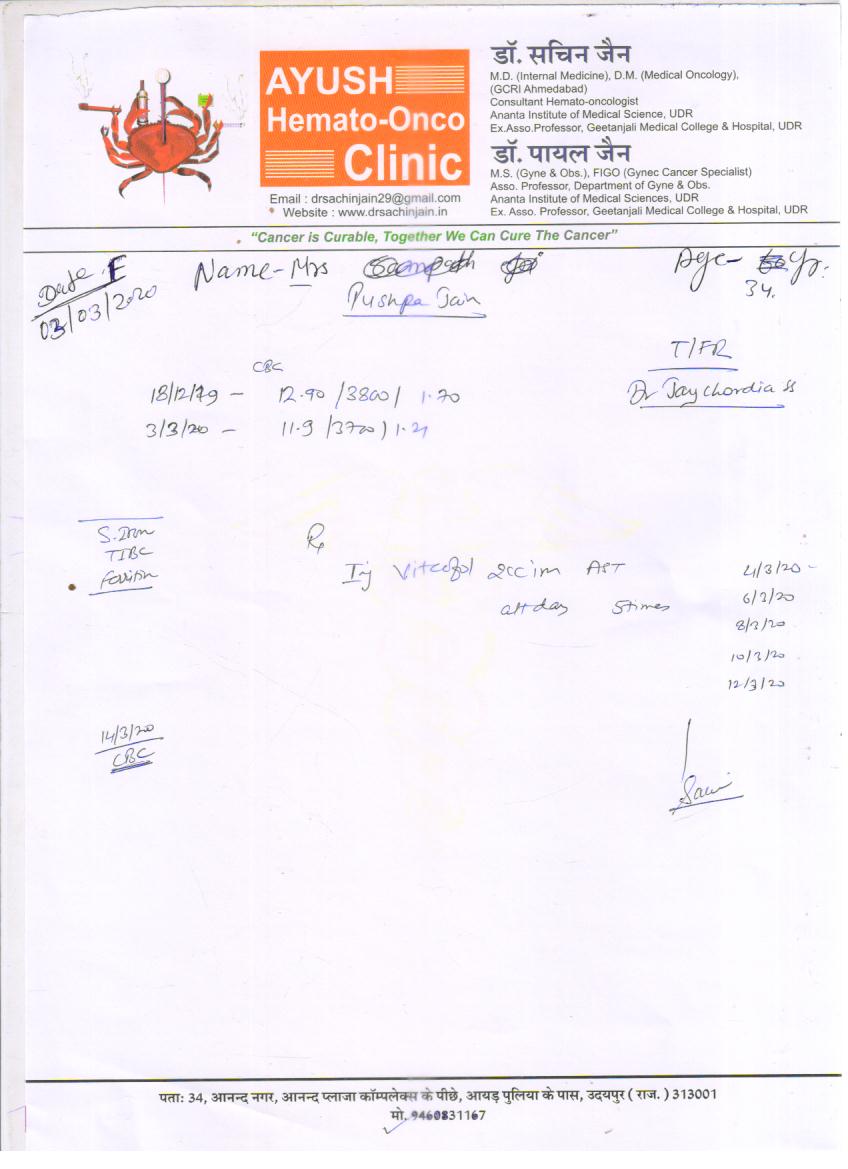 AYUSH
Hemato-Onco
Clinic
Email : drsachinjain29@gmail.com
Website : www.drsachinjain.in
डॉ. सचिन जैन
M.D. (Internal Medicine), D.M. (Medical Oncology),
(GCRI Ahmedabad)
Consultant Hemato-oncologist
Ananta Institute of Medical Science, UDR
Ex.Asso.Professor, Geetanjali Medical College & Hospital, UDR
डॉ. पायल जैन
M.S. (Gyne & Obs.), FIGO (Gynec Cancer Specialist)
Asso. Professor, Department of Gyne & Obs.
Ananta Institute of Medical Sciences, UDR
Ex. Asso. Professor, Geetanjali Medical College & Hospital, UDR
"Cancer is Curable, Together We Can Cure The Cancer"
Date F
03/03/2020
Name- Mrs
Pushpa Jain
Age- Yr.
34.
T/FR
Dr Jaychordia
CBC
18/12/19 - 12.90 /3800/ 1.70
3/3/20 - 11.9 /3700/ 1.21
S. Iron
TIBC
Rx
Inj Vitcofol 2cc im AST 4/3/20 -
alt day 5times 6/3/20
8/3/20
10/3/20
12/3/20
14/3/20
CBC
पता: 34, आनन्द नगर, आनन्द प्लाजा कॉम्पलेक्स के पीछे, आयड़ पुलिया के पास, उदयपुर ( राज. ) 313001
मो. 9460831167